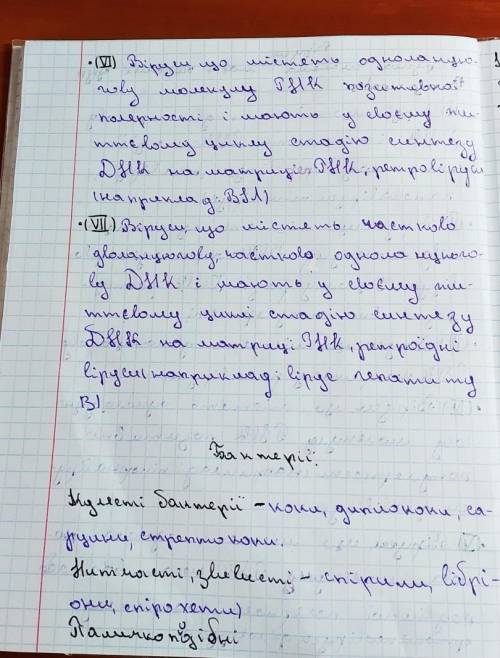 •(VI) Віруси що містять одноланцю-
гову молекулу РНК позитивної
полярності і мають у своєму жи-
ттєвому циклу стадію синтезу
ДНК на матриці РНК, ретровіруси
(наприклад: ВІЛ)
•(VII) Віруси, що містять частково
дволанцюгову, частково одноланцюго-
ву ДНК і мають у своєму жи-
ттєвому циклі стадію синтезу
ДНК на матриці РНК, ретроїдні
віруси (наприклад: вірус гепатиту
В).
Бактерії.
Кулясті бактерії - коки, диплококи, са-
рцини, стрептококи.
Нитчасті, звивисті - спірили, вібрі-
они, спірохети)
Паличкоподібні